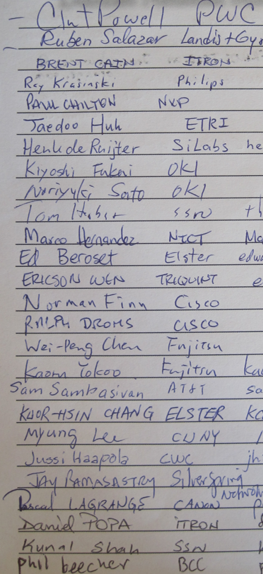 - Clint Powell PWC
Ruben Salazar Landis+Gyr
BRENT CAIN ITRON
Krasinski Philips
PAUL CHILTON NXP
Jaedoo Huh ETRI
Henk de Ruijter SiLabs he
Kiyoshi Fukui OKI
Noriyuki Sato OKI
Tom SSN th
Marco Hernandez NICT Ma
Ed Beroset Elster edw
ERICSON WEN TRIQUINT e
Norman Finn Cisco
RALPH DROMS CISCO
Wei-Peng Chen Fujitsu
Kaoru Yokoo Fujitsu kao
Sam Sambasivan AT&T sa
KUOR-HSIN CHANG ELSTER
Myung Lee CUNY
Jussi Haapola CWC jh
JAY RAMASASTRY Silverspring
Networks
Pascal LAGRANGE CANON
Daniel POPA ITRON
Kunal Shah SSN
phil beecher BCC